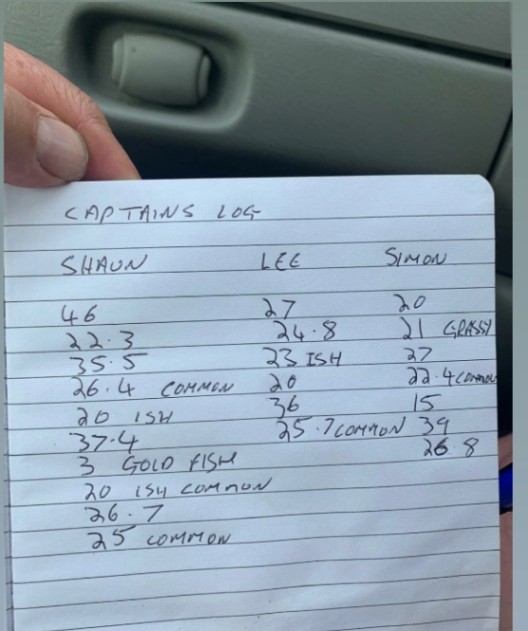 CAPTAINS LOG
SHAUN LEE SIMON
46 27 20
22.3 24.8 21 GRASSY
35.5 23 ISH 27
26.4 COMMON 20 22.4 COMMON
20 ISH 36 15
37.4 25.7 COMMON 39
3 GOLD FISH 26.8
20 ISH COMMON
26.7
25 COMMON